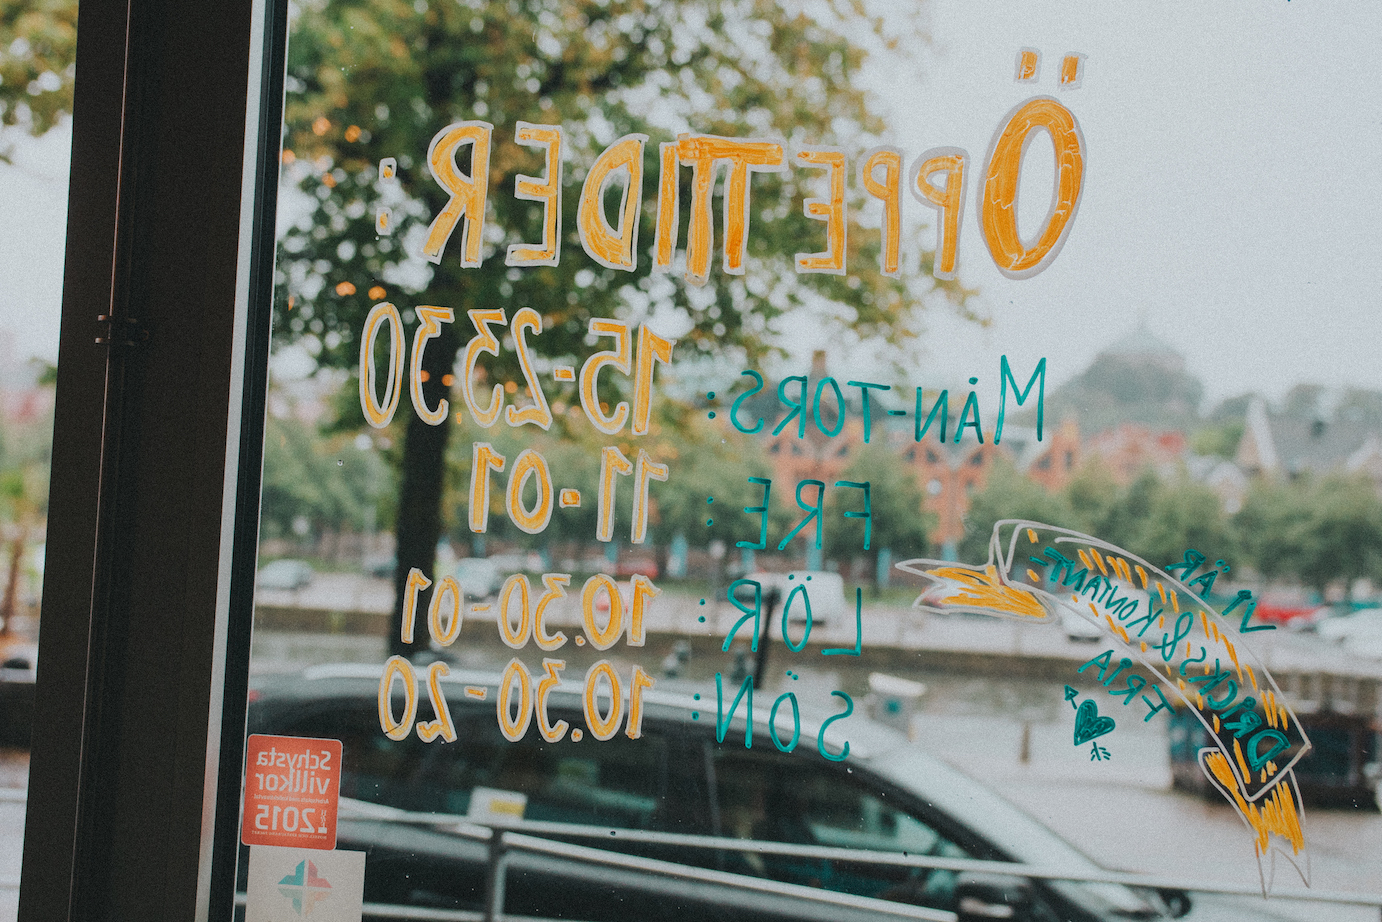 ÖPPETTIDER:
MÅN-TORS: 15-2330
FRE: 11-01
LÖR: 10.30-01
SÖN: 10.30-20
VI ÄR
DRICKS & KONTANT-
FRIA
Schysta
villkor
2015